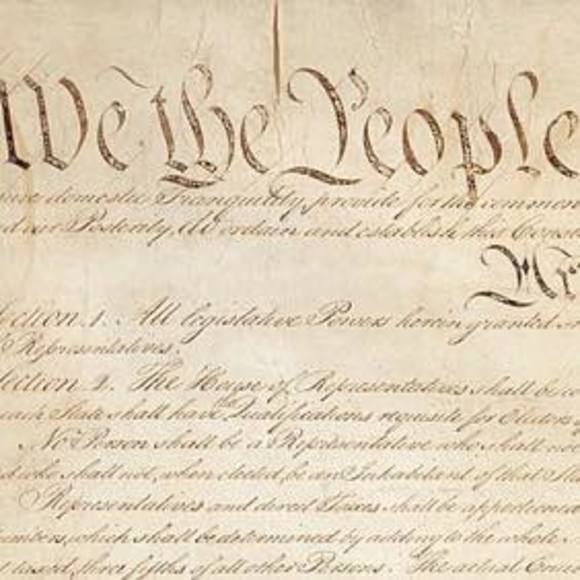 We the People
domestic Tranquility, provide for the common
our Posterity, do ordain and establish this Const
Ar
ection. 1. All legislative Powers herein granted
Representatives.
ection. 2. The House of Representatives shall be
each State shall have the Qualifications requisite for Electors
No Person shall be a Representative who shall not
who shall not, when elected, be an Inhabitant of that
Representatives and direct Taxes shall be apportioned
umbers, which shall be determined by adding to the whole
taxed, three fifths of all other Persons. The actual Enu